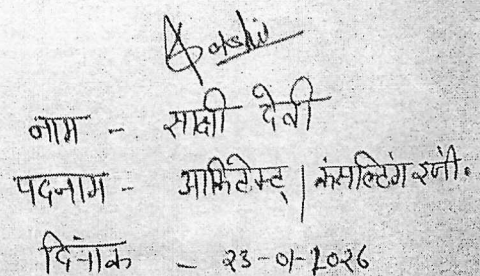 Sakshi
नाम - साक्षी देवी
पदनाम - आर्किटेक्ट् | कंसल्टिंग इंजी.
दिनांक - २३-०१-२०२६